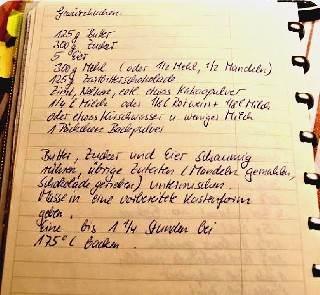 Gewürzkuchen
125 g Butter
300 g Zucker
5 Eier
300 g Mehl (oder 1/2 Mehl, 1/2 Mandeln)
125 g Zartbitterschokolade
Zimt, Nelken, evtl. etwas Kakaopulver
1/4 l Milch oder 1/8 l Rotwein + 1/8 l Milch
oder etwas Kirschwasser u. weniger Milch
1 Päckchen Backpulver
Butter, Zucker und Eier schaumig
rühren, übrige Zutaten (Mandeln gemahlen,
Schokolade gerieben) untermischen.
Masse in eine vorbereitete Kastenform
geben.
Eine bis 1 1/4 Stunden bei
175° C backen.